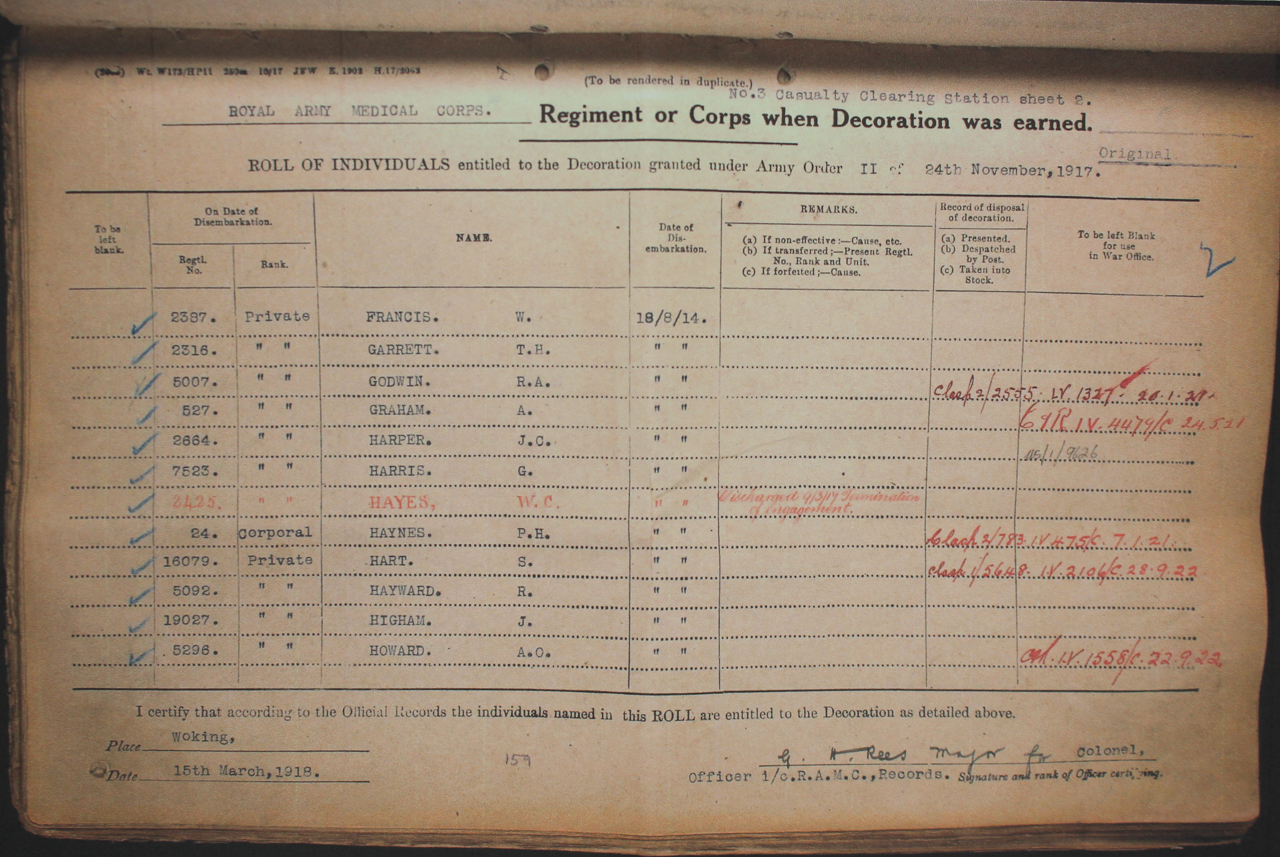 Wt. W173/HP11 250m 10/17 JFW E.1902 H.17/2063
(To be rendered in duplicate.)
No.3 Casualty Clearing Station sheet 2.
ROYAL ARMY MEDICAL CORPS. Regiment or Corps when Decoration was earned.
Original
ROLL OF INDIVIDUALS entitled to the Decoration granted under Army Order II of 24th November, 1917.
To be left blank.
On Date of Disembarkation.
Regtl. No.
Rank.
NAME.
Date of Dis-embarkation.
REMARKS.
(a) If non-effective :—Cause, etc.
(b) If transferred ;—Present Regtl. No., Rank and Unit.
(c) If forfeited ;—Cause.
Record of disposal of decoration.
(a) Presented.
(b) Despatched by Post.
(c) Taken into Stock.
To be left Blank for use in War Office.
2
2387. Private FRANCIS. W. 18/8/14.
2316. " " GARRETT. T.H. " "
5007. " " GODWIN. R.A. " " Clasp 2/2555. IV 1327
527. " " GRAHAM. A. " " IV. 4479/C 24.5.21
2664. " " HARPER. J.C. " "
7523. " " HARRIS. G. " "
2425. " " HAYES, W.C. " " Discharged Termination of Engagement.
24. Corporal HAYNES. P.H. " " Clasp 2/783 IV 475/C. 7.1.21.
16079. Private HART. S. " " Clasp 1/5648. IV.2106/C 28.9.22
5092. " " HAYWARD. R. " "
19027. " " HIGHAM. J. " "
5296. " " HOWARD. A.O. " " IV.1558/C. 22.9.22
I certify that according to the Official Records the individuals named in this ROLL are entitled to the Decoration as detailed above.
Place Woking,
Date 15th March, 1918.
159
G. H. Rees Major for Colonel,
Officer i/c.R.A.M.C., Records. Signature and rank of Officer certifying.